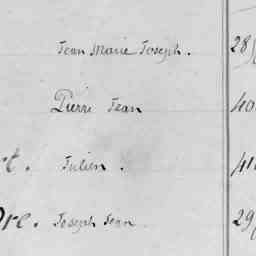 Jean Marie Joseph. 28
Pierre Jean 40
rt. Julien. 41
re. Joseph Jean 29